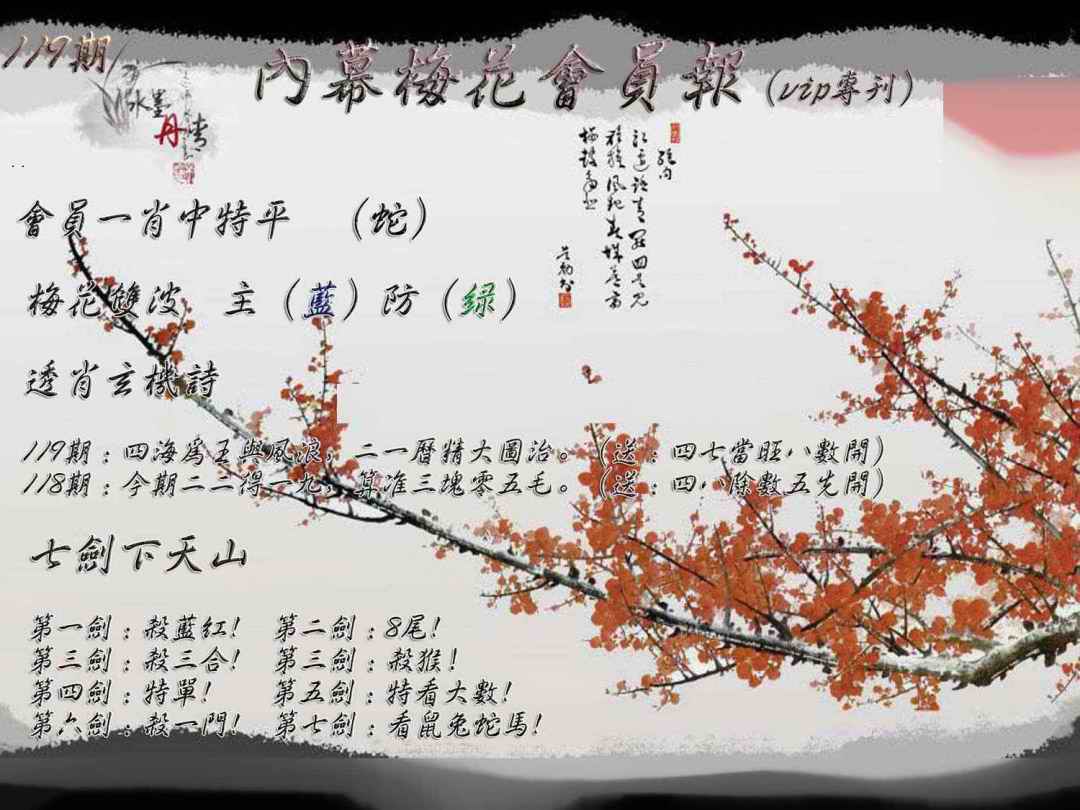 119期
水墨丹青
內幕梅花會員報(vip專刊)
會員一肖中特平 （蛇）
梅花雙波 主（藍）防（綠）
透肖玄機詩
119期：四海為王與風浪，二一曆精大圖治。（送：四七當旺八數開）
118期：今期二二得一九，算准三塊零五毛。（送：四八除數五先開）
七劍下天山
第一劍：殺藍紅! 第二劍：8尾!
第三劍：殺三合! 第三劍：殺猴!
第四劍：特單! 第五劍：特看大數!
第六劍：殺一門! 第七劍：看鼠兔蛇馬!